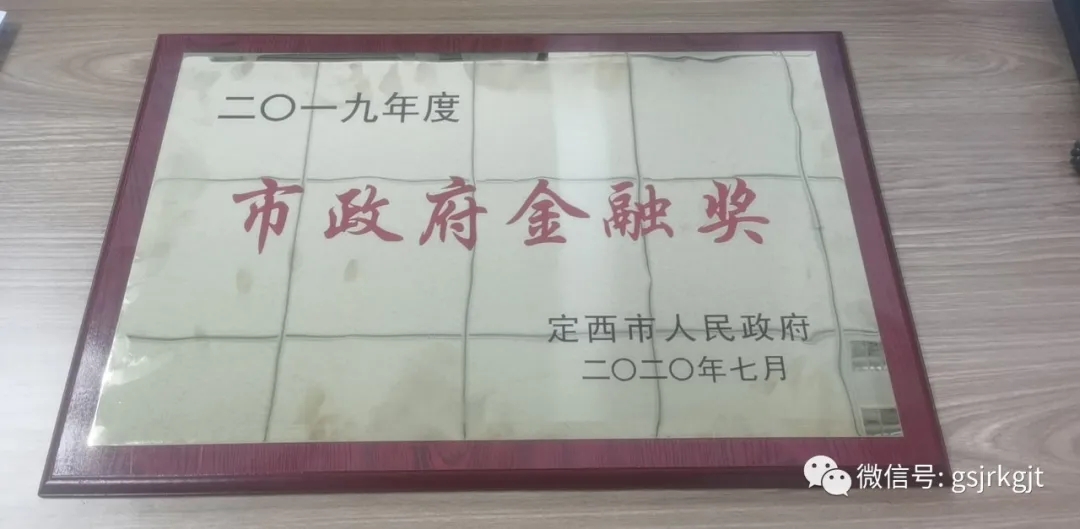 二〇一九年度
市政府金融奖
定西市人民政府
二〇二〇年七月
微信号: gsjrkgjt